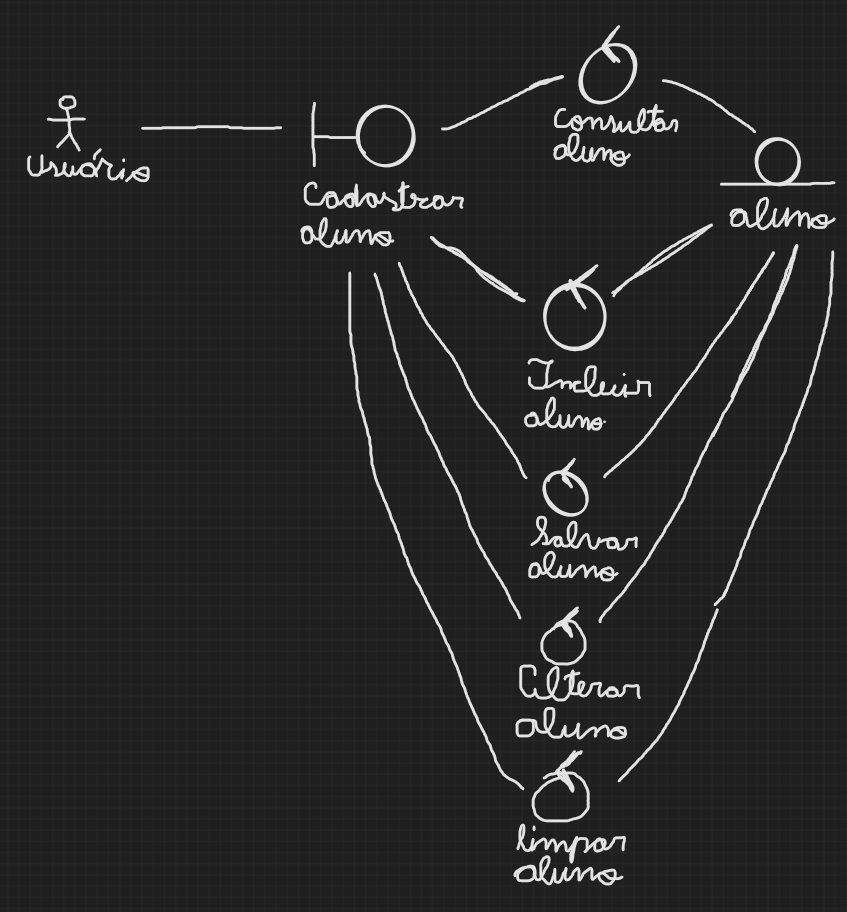 Usuário
Cadastrar
aluno
Consultar
aluno
aluno
Incluir
aluno
Salvar
aluno
Alterar
aluno
limpar
aluno